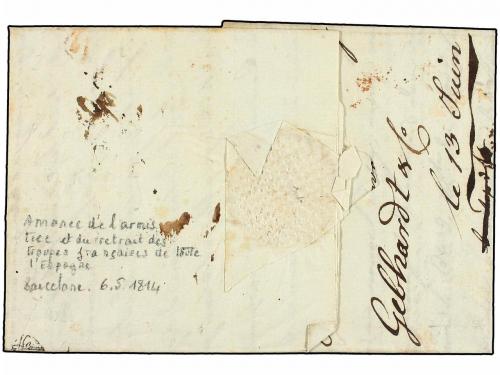 Annonce de l'armis
tice et du retrait des
troupes françaises de toute
l'Espagne
Barcelone. 6.5.1814
Gebhardt & Co
le 13 Juin